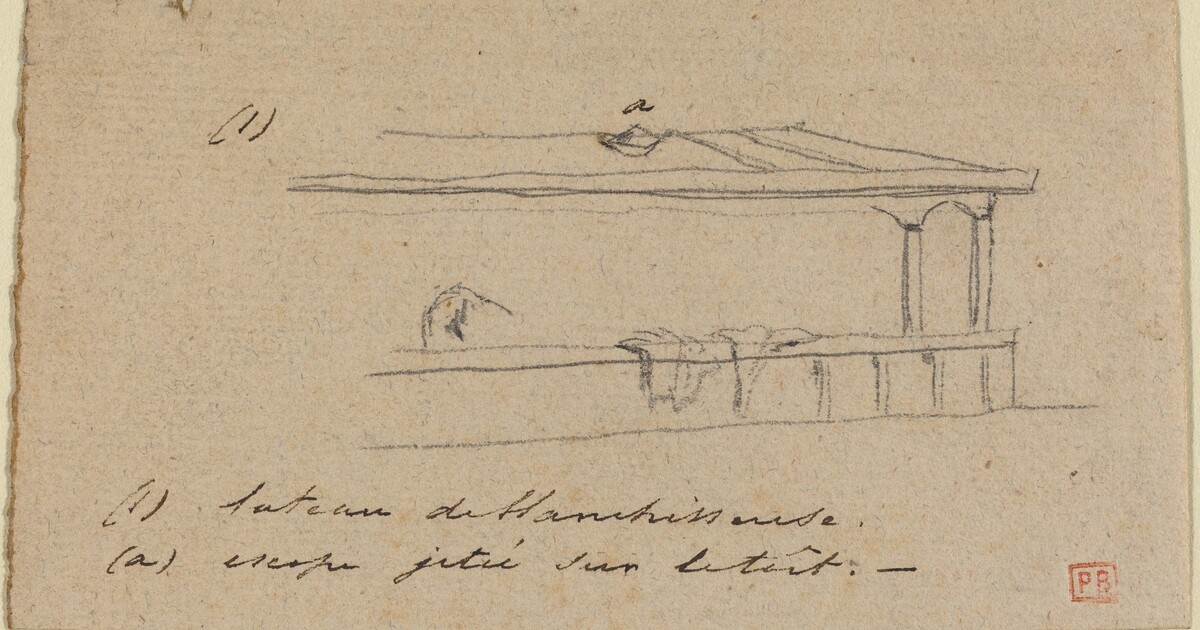 a
(1)
(1) bateau de blanchisseuse.
(a) escope jetée sur le toît. —
PB